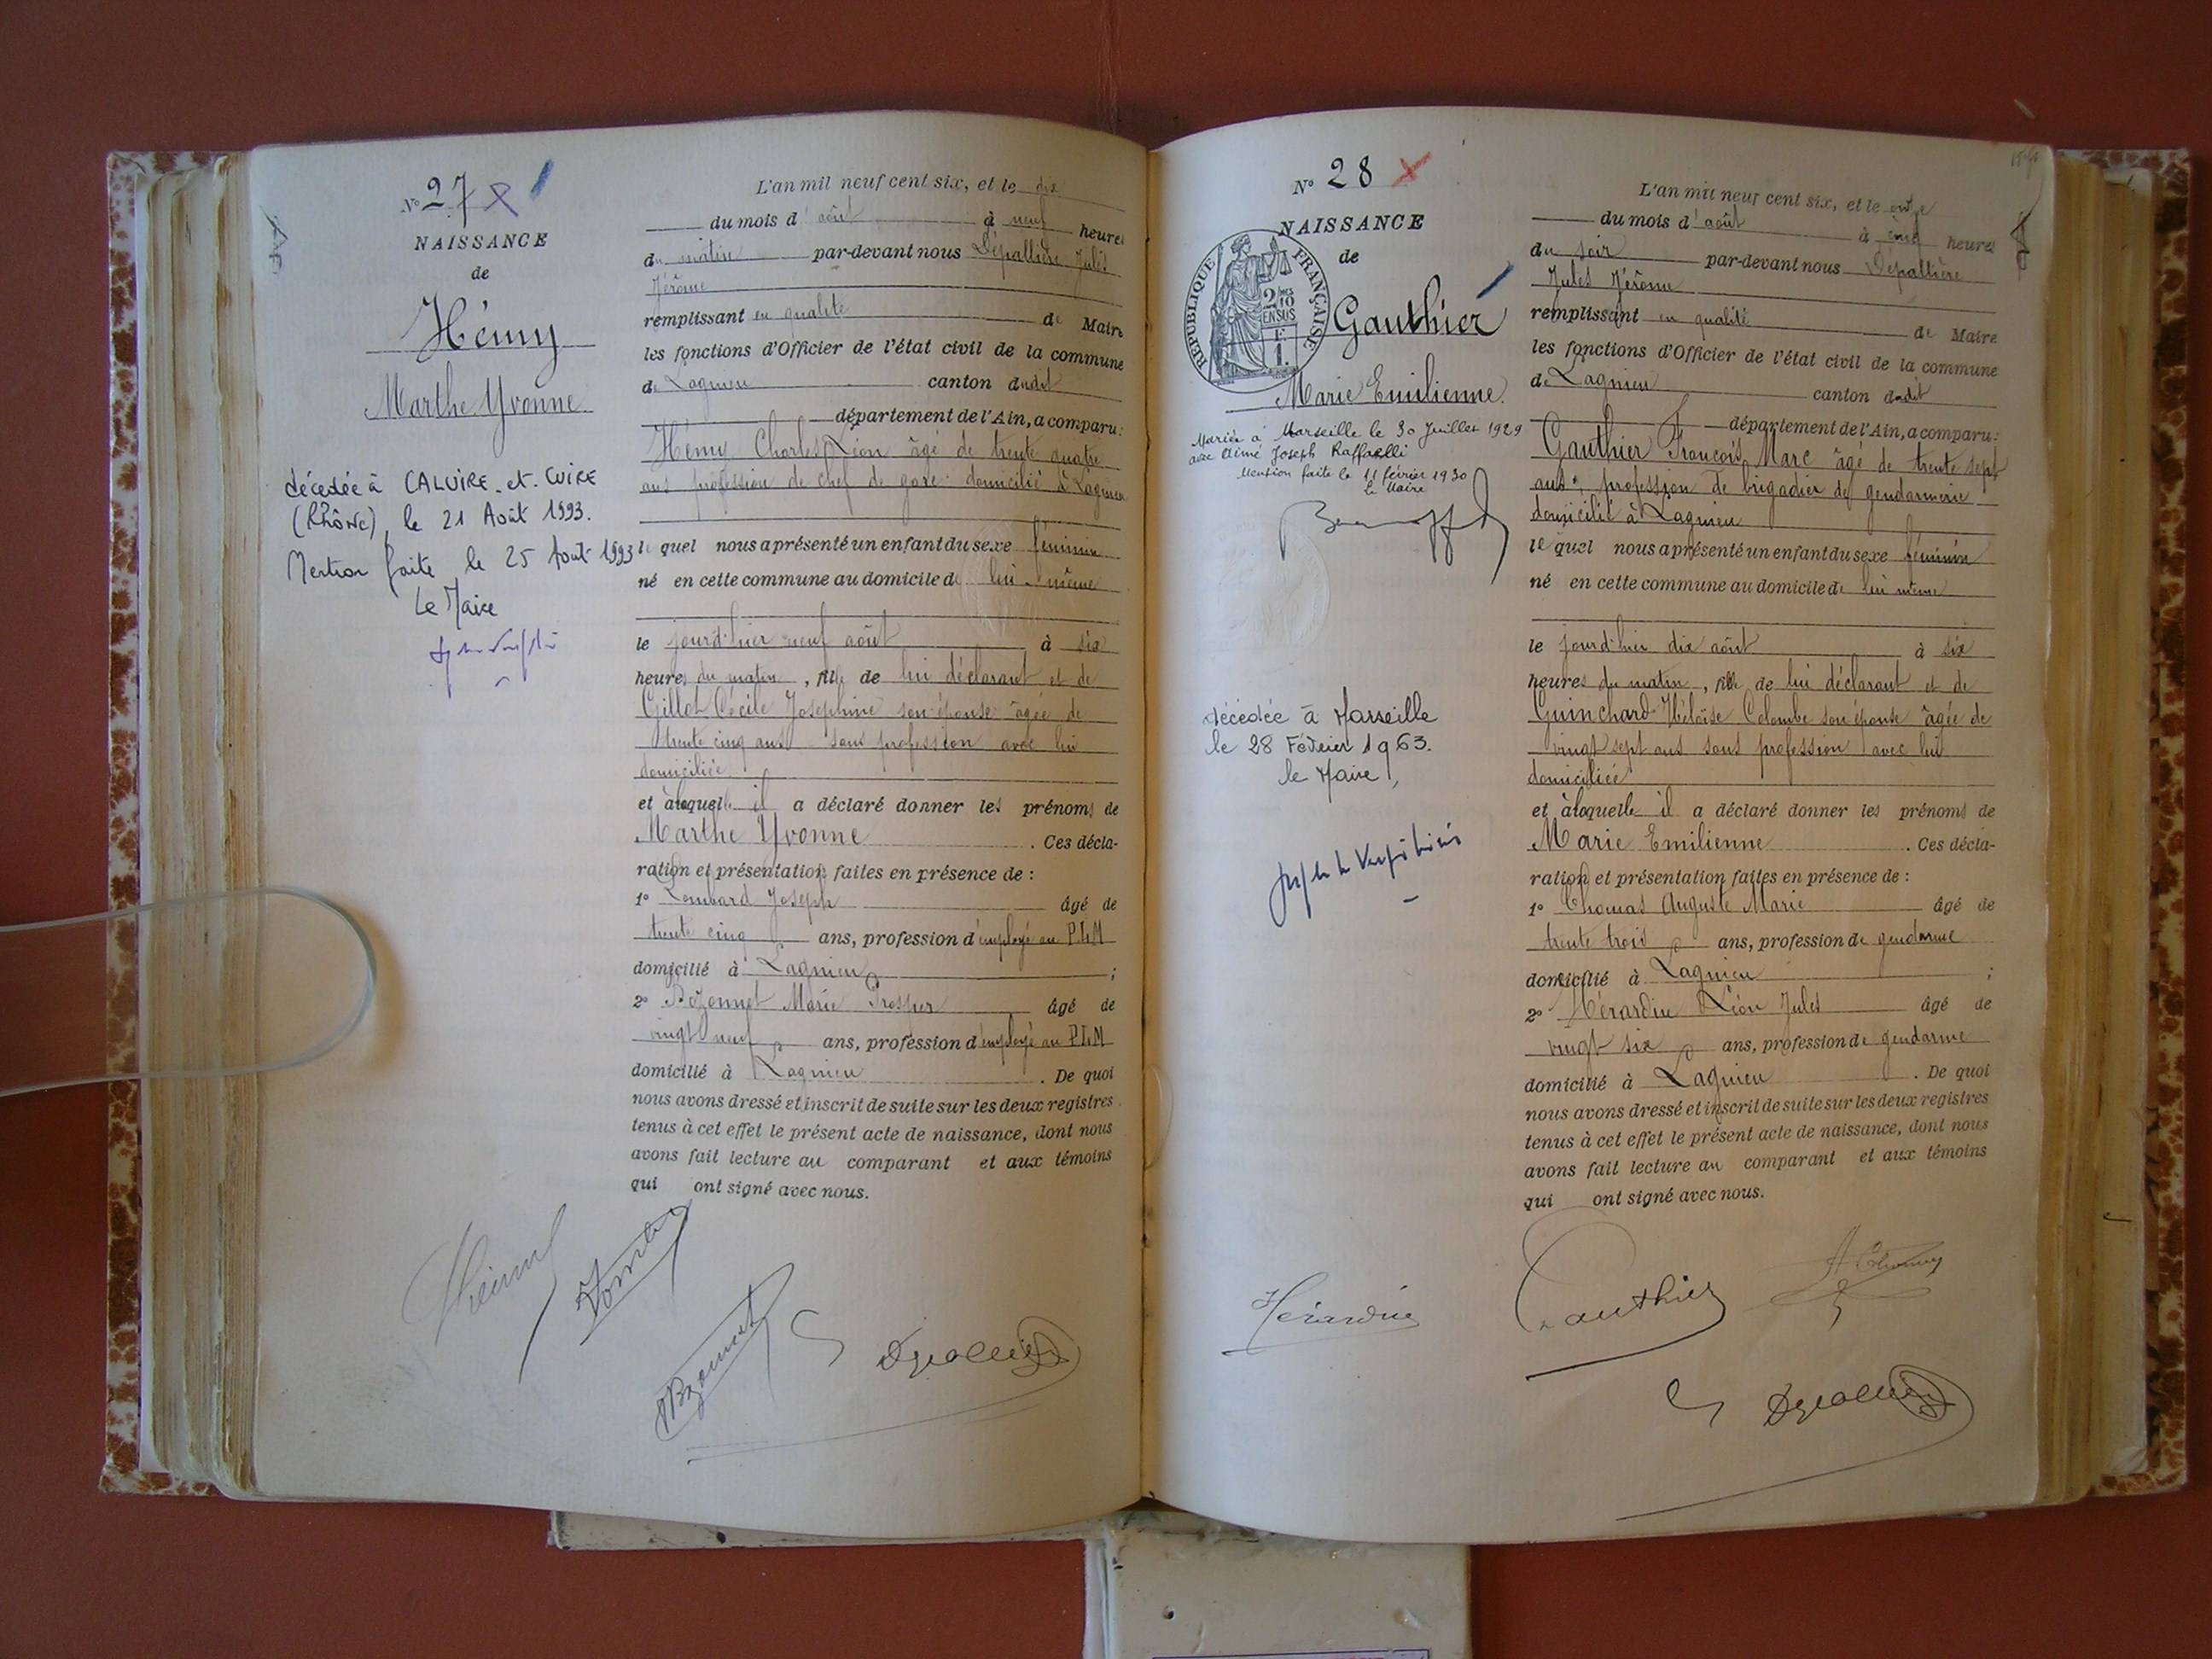 N° 27
NAISSANCE
de
Hémy
Marthe Yvonne
décédée à CALUIRE-et-CUIRE
(Rhône), le 21 Août 1993.
Mention faite le 25 Août 1993
Le Maire
L'an mil neuf cent six, et le dix
du mois d'août à neuf heures
du matin par-devant nous Dépallière Jules
Jérôme
remplissant en qualité de Maire
les fonctions d'Officier de l'état civil de la commune
de Lagnieu canton dudit
département de l'Ain, a comparu:
Hémy Charles Léon âgé de trente quatre
ans profession de chef de gare domicilié à Lagnieu
lequel nous a présenté un enfant du sexe féminin
né en cette commune au domicile de lui même
le jourd'hier neuf août à six
heures du matin, fille de lui déclarant et de
Gillot Cécile Joséphine son épouse âgée de
trente cinq ans sans profession avec lui
domiciliée
et à laquelle il a déclaré donner les prénoms de
Marthe Yvonne. Ces décla-
ration et présentation faites en présence de :
1° Lombard Joseph âgé de
trente cinq ans, profession d'employé au P.L.M
domicilié à Lagnieu ;
2° Bozonnet Marie Prosper âgé de
vingt neuf ans, profession d'employé au P.L.M
domicilié à Lagnieu. De quoi
nous avons dressé et inscrit de suite sur les deux registres
tenus à cet effet le présent acte de naissance, dont nous
avons fait lecture au comparant et aux témoins
qui ont signé avec nous.
N° 28
NAISSANCE
de
RÉPUBLIQUE FRANÇAISE
Gauthier
Marie Emilienne.
Mariée à Marseille le 30 Juillet 1929
avec Aimé Joseph Raffaelli
Mention faite le 11 février 1930
le Maire
décédée à Marseille
le 28 Février 1963.
le Maire,
L'an mil neuf cent six, et le onze
du mois d'août à cinq heures
du soir par-devant nous Dépallière
Jules Jérôme
remplissant en qualité de Maire
les fonctions d'Officier de l'état civil de la commune
de Lagnieu canton dudit
département de l'Ain, a comparu:
Gauthier François Marc âgé de trente sept
ans, profession de brigadier de gendarmerie
domicilié à Lagnieu
lequel nous a présenté un enfant du sexe féminin
né en cette commune au domicile de lui même
le jourd'hier dix août à six
heures du matin, fille de lui déclarant et de
Guinchard Héloïse Colombe son épouse âgée de
vingt sept ans sans profession avec lui
domiciliée
et à laquelle il a déclaré donner les prénoms de
Marie Emilienne. Ces décla-
ration et présentation faites en présence de :
1° Thomas Auguste Marie âgé de
trente trois ans, profession de gendarme
domicilié à Lagnieu ;
2° Hérardin Léon Jules âgé de
vingt six ans, profession de gendarme
domicilié à Lagnieu. De quoi
nous avons dressé et inscrit de suite sur les deux registres
tenus à cet effet le présent acte de naissance, dont nous
avons fait lecture au comparant et aux témoins
qui ont signé avec nous.
Hérardin
Gauthier